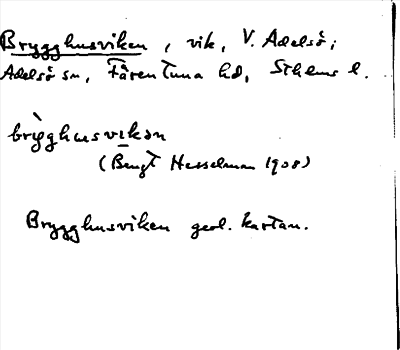 Brygghusviken, vik, V. Adelsö;
Adelsö sn, Färentuna hd, Sthlms l.
brỳghusvikən
(Bengt Hesselman 1908)
Brygghusviken geol. kartan.